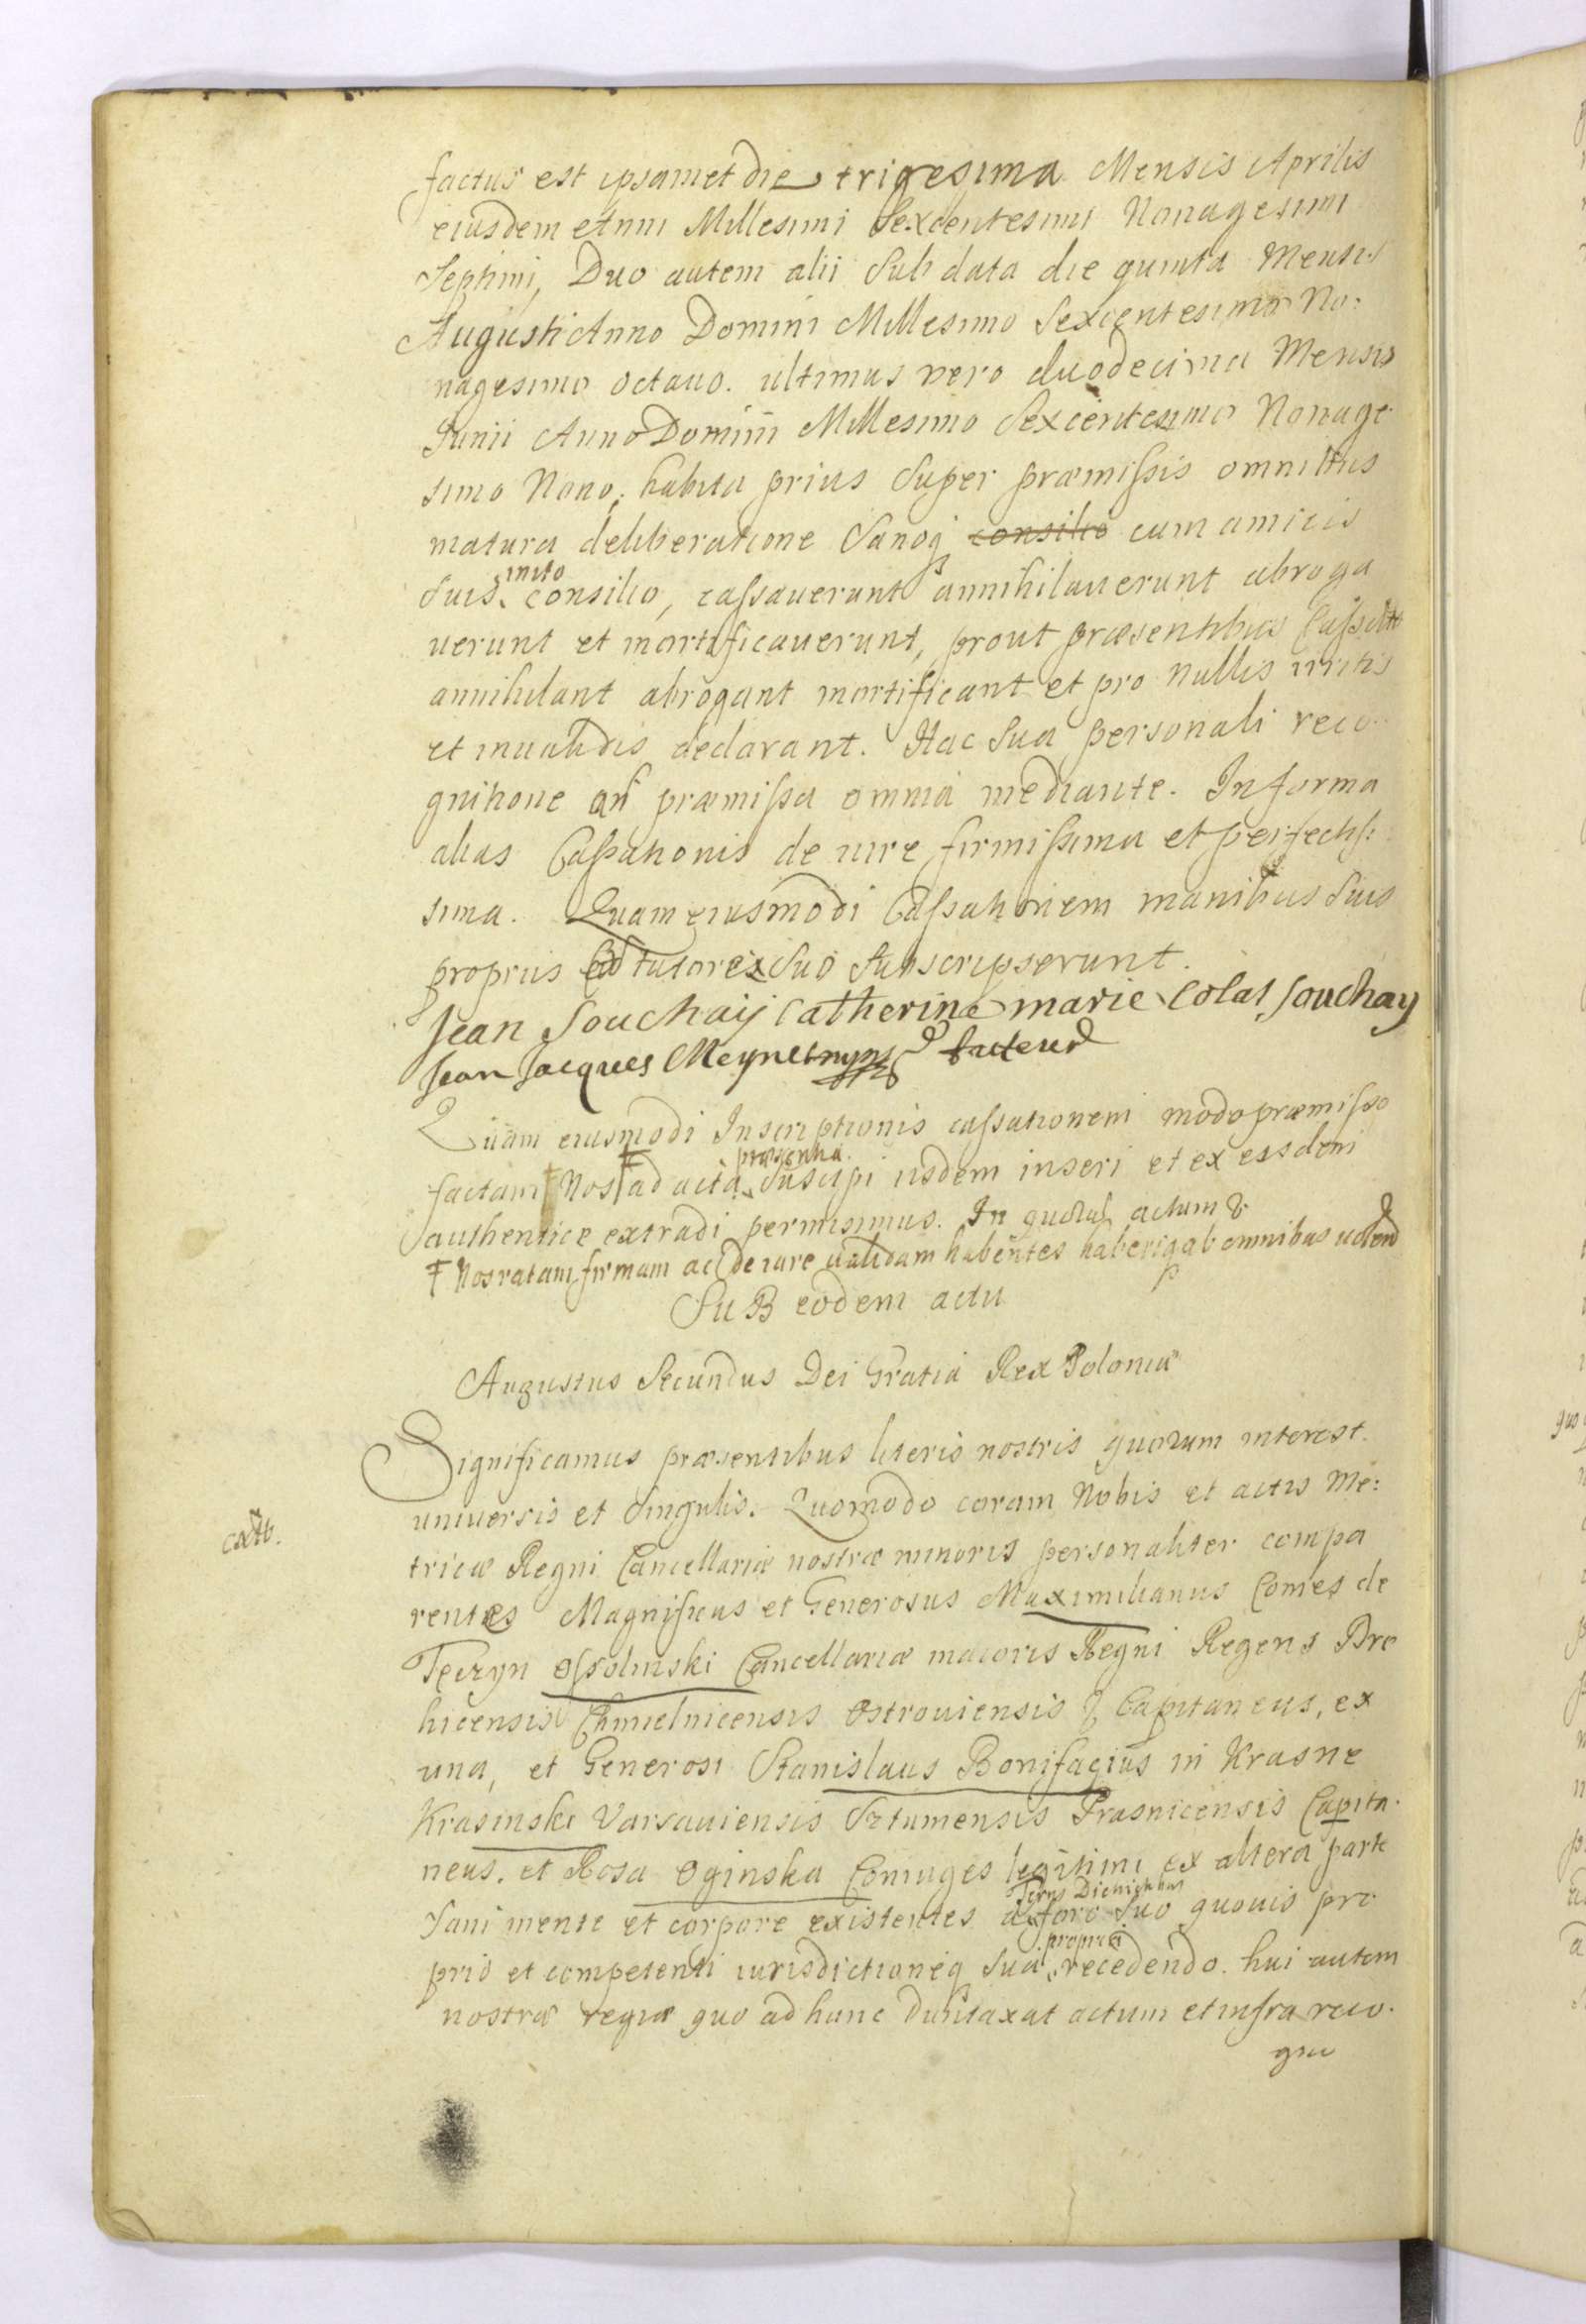 factus est ipsamet die trigesima Mensis Aprilis
eiusdem Anni Millesimi Sexcentesimi Nonagesimi
Septimi, Duo autem alii Sub data die quinta Mensis
Augusti Anno Domini Millesimo Sexcentesimo No:
nagesimo octavo. ultimus vero duodecima Mensis
Junii Anno Domini Millesimo Sexcentesimo Nonage
simo Nono, habita prius Super præmissis omnibus
matura deliberatione Sanoq consilio cum amicis
Suis inito consilio, cassauerunt annihilauerunt abroga
uerunt et mortificauerunt, prout præsentibus Cassant
annihilant abrogant mortificant et pro nullis irritis
et inualidis declarant. Hac Sua personali reco
gnitione præmissa omnia mediante. In forma
alias Cassationis de iure firmissima et perfectis
sima. Quam eiusmodi Cassationem manibus Suis
propriis tutore Suo Subscripserunt.
Jean Souchaij Catherine marie Colas Souchay
Jean Jacques tuteur
Quam eiusmodi Inscriptionis cassationem modo præmisso
factam Nos ad acta præsentia Suscipi iisdem inseri et ex eisdem
authentice extradi permisimus. In quorum actum &
Ŧ Nos ratam firmam ac de iure validam habentes haberiq ab omnibus volend
SuB eodem actu
Augustus Secundus Dei Gratia Rex Poloniæ
Significamus præsentibus literis nostris quorum interest.
universis et Singulis. Quomodo coram Nobis et actis Me:
cassb.
tricæ Regni Cancellariæ nostræ minoris personaliter compa
rentes Magnificus et Generosus Maximilianus Comes de
Teczyn Ossolinski Cancellariæ maioris Regni Regens Dro
hicensis Chmielnicensis Ostroviensis & Capitaneus, ex
una, et Generosi Stanislaus Bonifacius in Krasne
Krasinski Varsaviensis Sztumensis Prasnicensis Capita
neus. et Rosa Oginska Coniuges legitimi ex altera parte
Sani mente et corpore existentes a foro Suo quovis pro
prio et competenti iurisdictioneq Sua propria recedendo. hui autem
nostræ regiæ quo ad hunc duntaxat actum et infra reco.
gni